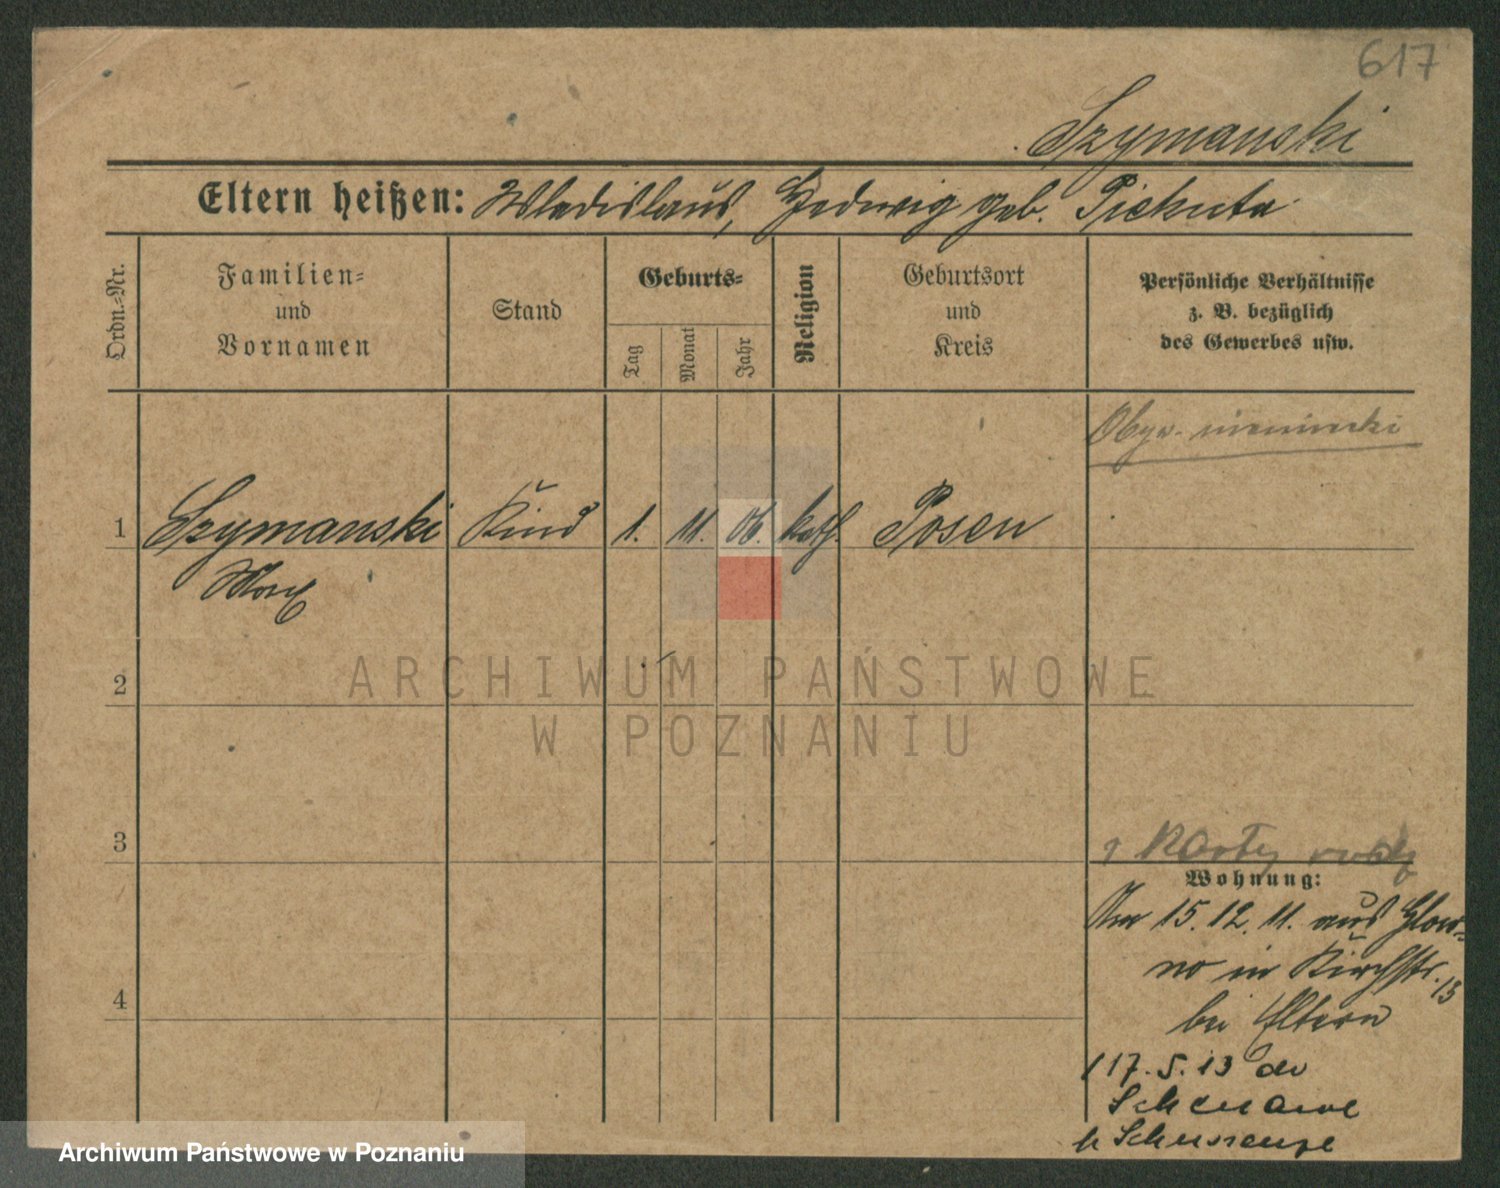 617
Szymanski
Eltern heißen: Wladislaus, Hedwig geb. Piekuta
Ordn.-Nr.
Familien-
und
Vornamen
Stand
Geburts-
Tag
Monat
Jahr
Religion
Geburtsort
und
Kreis
Persönliche Verhältnisse
z. B. bezüglich
des Gewerbes usw.
Obyw. niemiecki
1 Szymanski Kind 1. 11. 06. kath. Posen
Max
2
ARCHIWUM PAŃSTWOWE
W POZNANIU
3
Karty
Wohnung:
Am 15. 12. 11. aus Glow-
no in Kirchstr. 13
bei Eltern
4
17. 5. 13
Archiwum Państwowe w Poznaniu